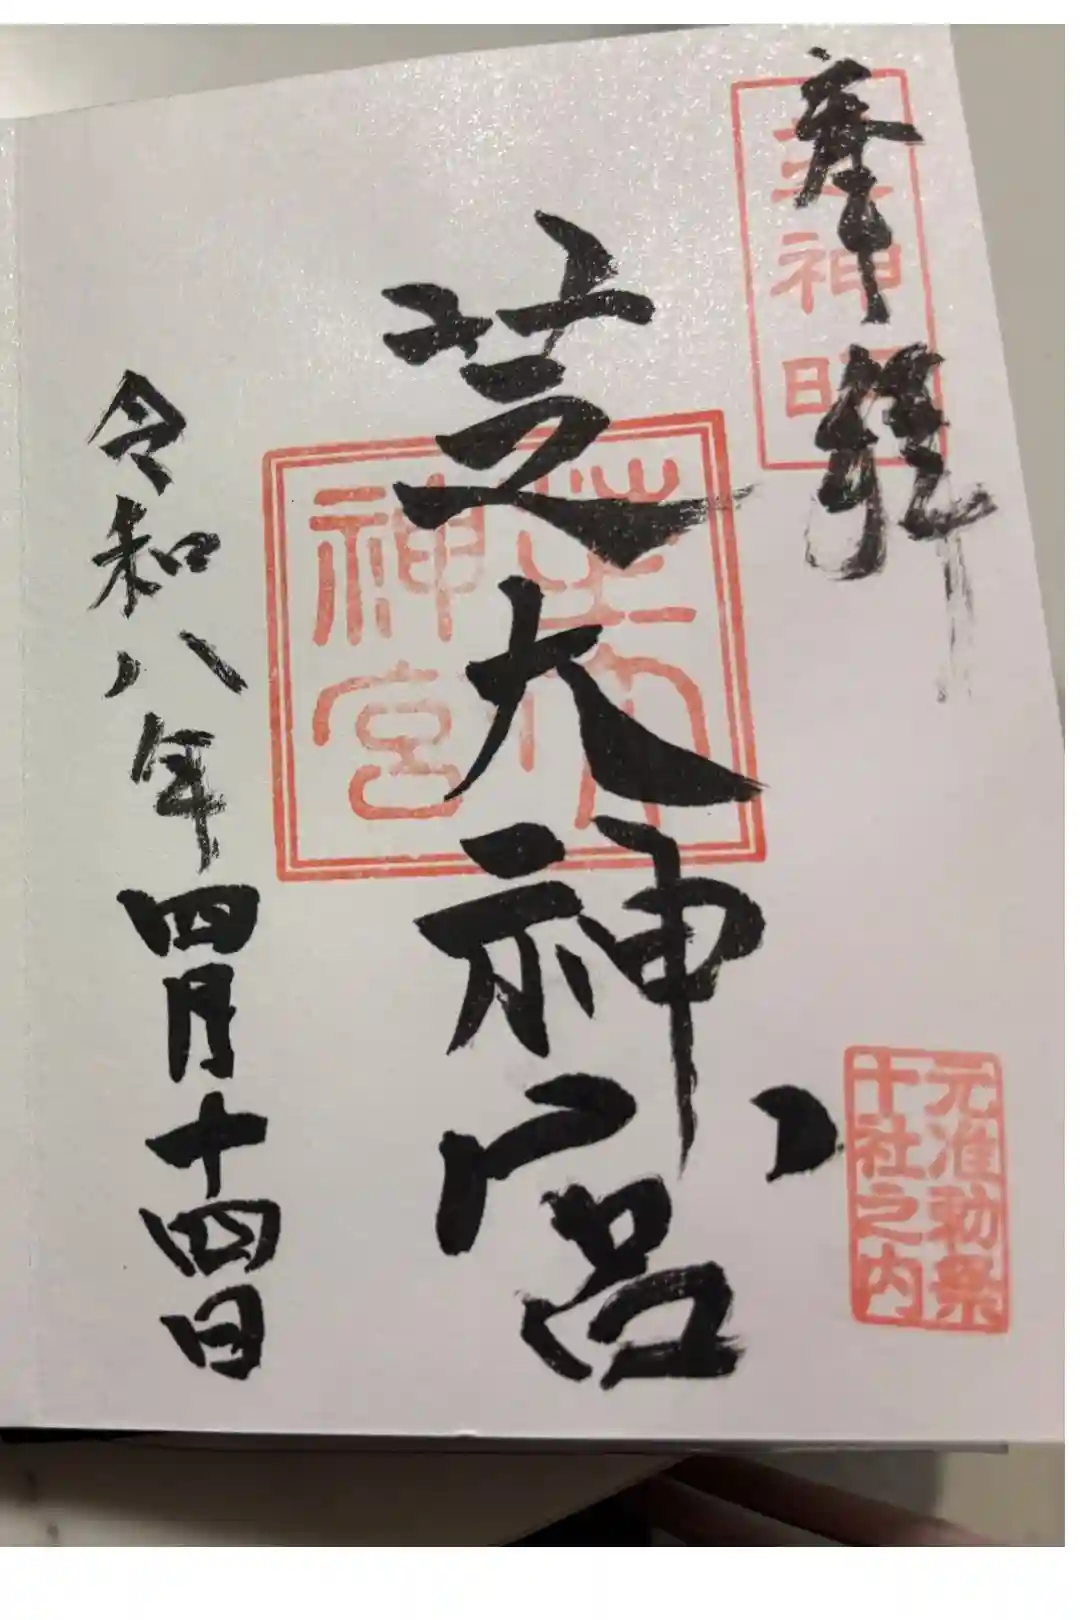 奉拝
芝神明
芝大神宮
芝大神宮
元准勅祭
十社之内
令和八年四月十四日